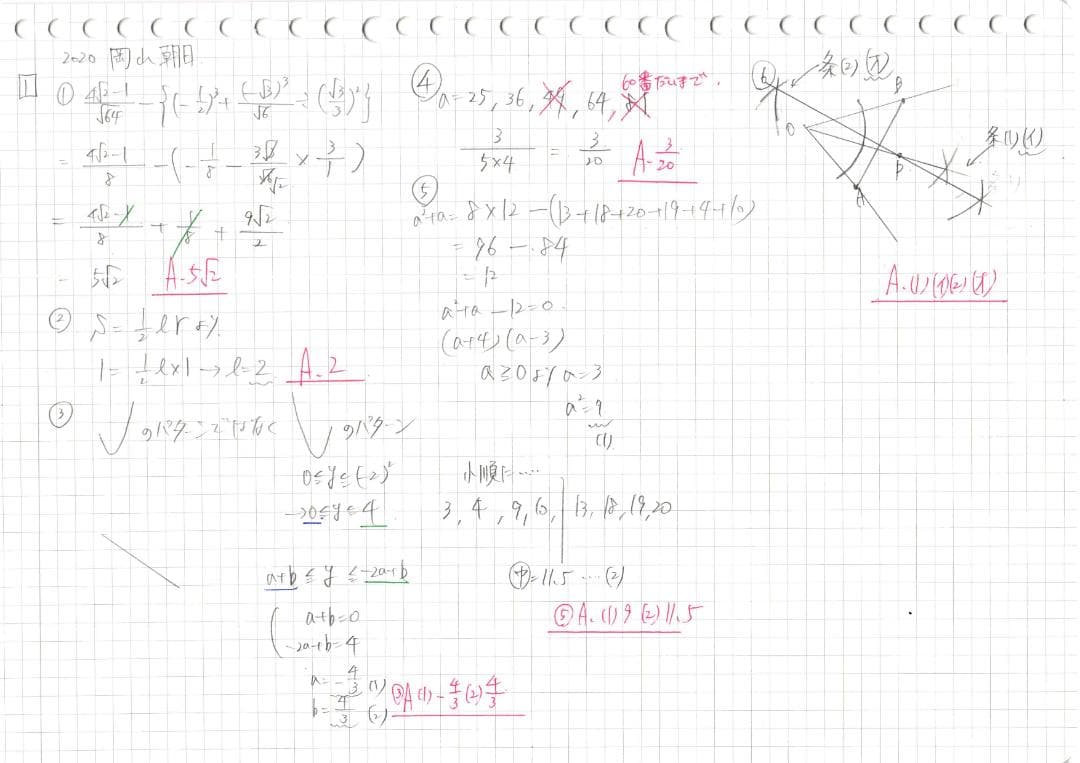 2020 岡山朝日
1
① (4√2-1)/√64 - {(-1/2)³ + (-√3)³/√6 ÷ (√3/3)²}
= (4√2-1)/8 - (-1/8 - 3√3/√6√2 × 3/1)
= (4√2-1)/8 + 1/8 + 9√2/2
= 5√2 A. 5√2
② S = 1/2 lr より
1 = 1/2 l×1 → l=2 A. 2
③ のパターンではなく のパターン
0≦y≦(-2)²
→0≦y≦4
a+b ≦ y ≦ -2a+b
a+b=0
-2a+b=4
a=-4/3 (1)
b=4/3 (2)
③A (1) -4/3 (2) 4/3
④ a=25, 36, 49, 64, 81 60番だいまで.
3/(5×4) = 3/20 A. 3/20
⑤
a²+a = 8×12 - (13+18+20+19+4+10)
= 96 - 84
= 12
a²+a-12=0
(a+4)(a-3)
a≧0より a=3
a²=9
(1)
小順に……
3, 4, 9, 10, 13, 18, 19, 20
㊥=11.5 …(2)
⑤A. (1) 9 (2) 11.5
⑥ 条(2)(オ)
O
B
条(1)(イ)
P
A
A. (1)(イ)(2)(オ)